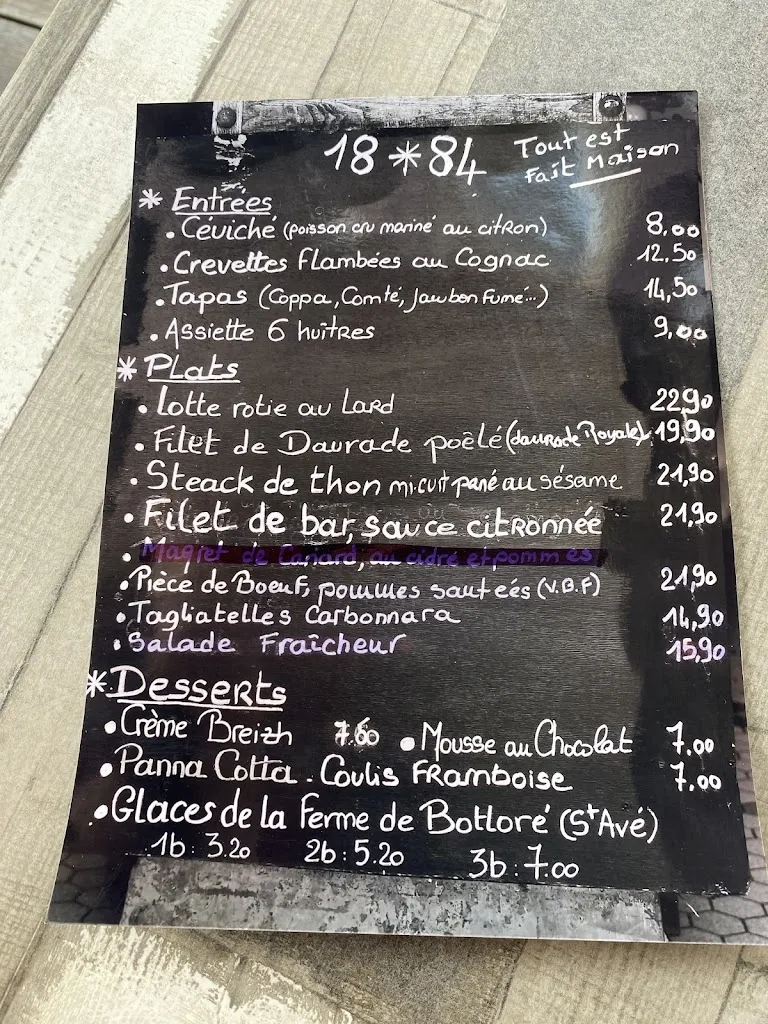 18*84 Tout est
Fait Maison
* Entrées
. Céviché (poisson cru mariné au citron) 8,00
. Crevettes Flambées au Cognac 12,50
. Tapas (Coppa, Comté, Jambon Fumé...) 14,50
. Assiette 6 huîtres 9,00
* Plats
. Lotte rotie au Lard 22,90
. Filet de Daurade poêlé (daurade Royale) 19,90
. Steack de thon mi.cuit pané au sésame 21,90
. Filet de bar, sauce citronnée 21,90
. Magret de Canard, au cidre et pommes
. Pièce de Boeuf, pommes sauteés (V.B.F) 21,90
. Tagliatelles Carbonnara 14,90
. Salade Fraîcheur 15,90
* Desserts
. Crème Breizh 7.60 . Mousse au Chocolat 7,00
. Panna Cotta . Coulis Framboise 7,00
. Glaces de la Ferme de Botloré (St Avé)
1b : 3.20 2b : 5.20 3b : 7.00